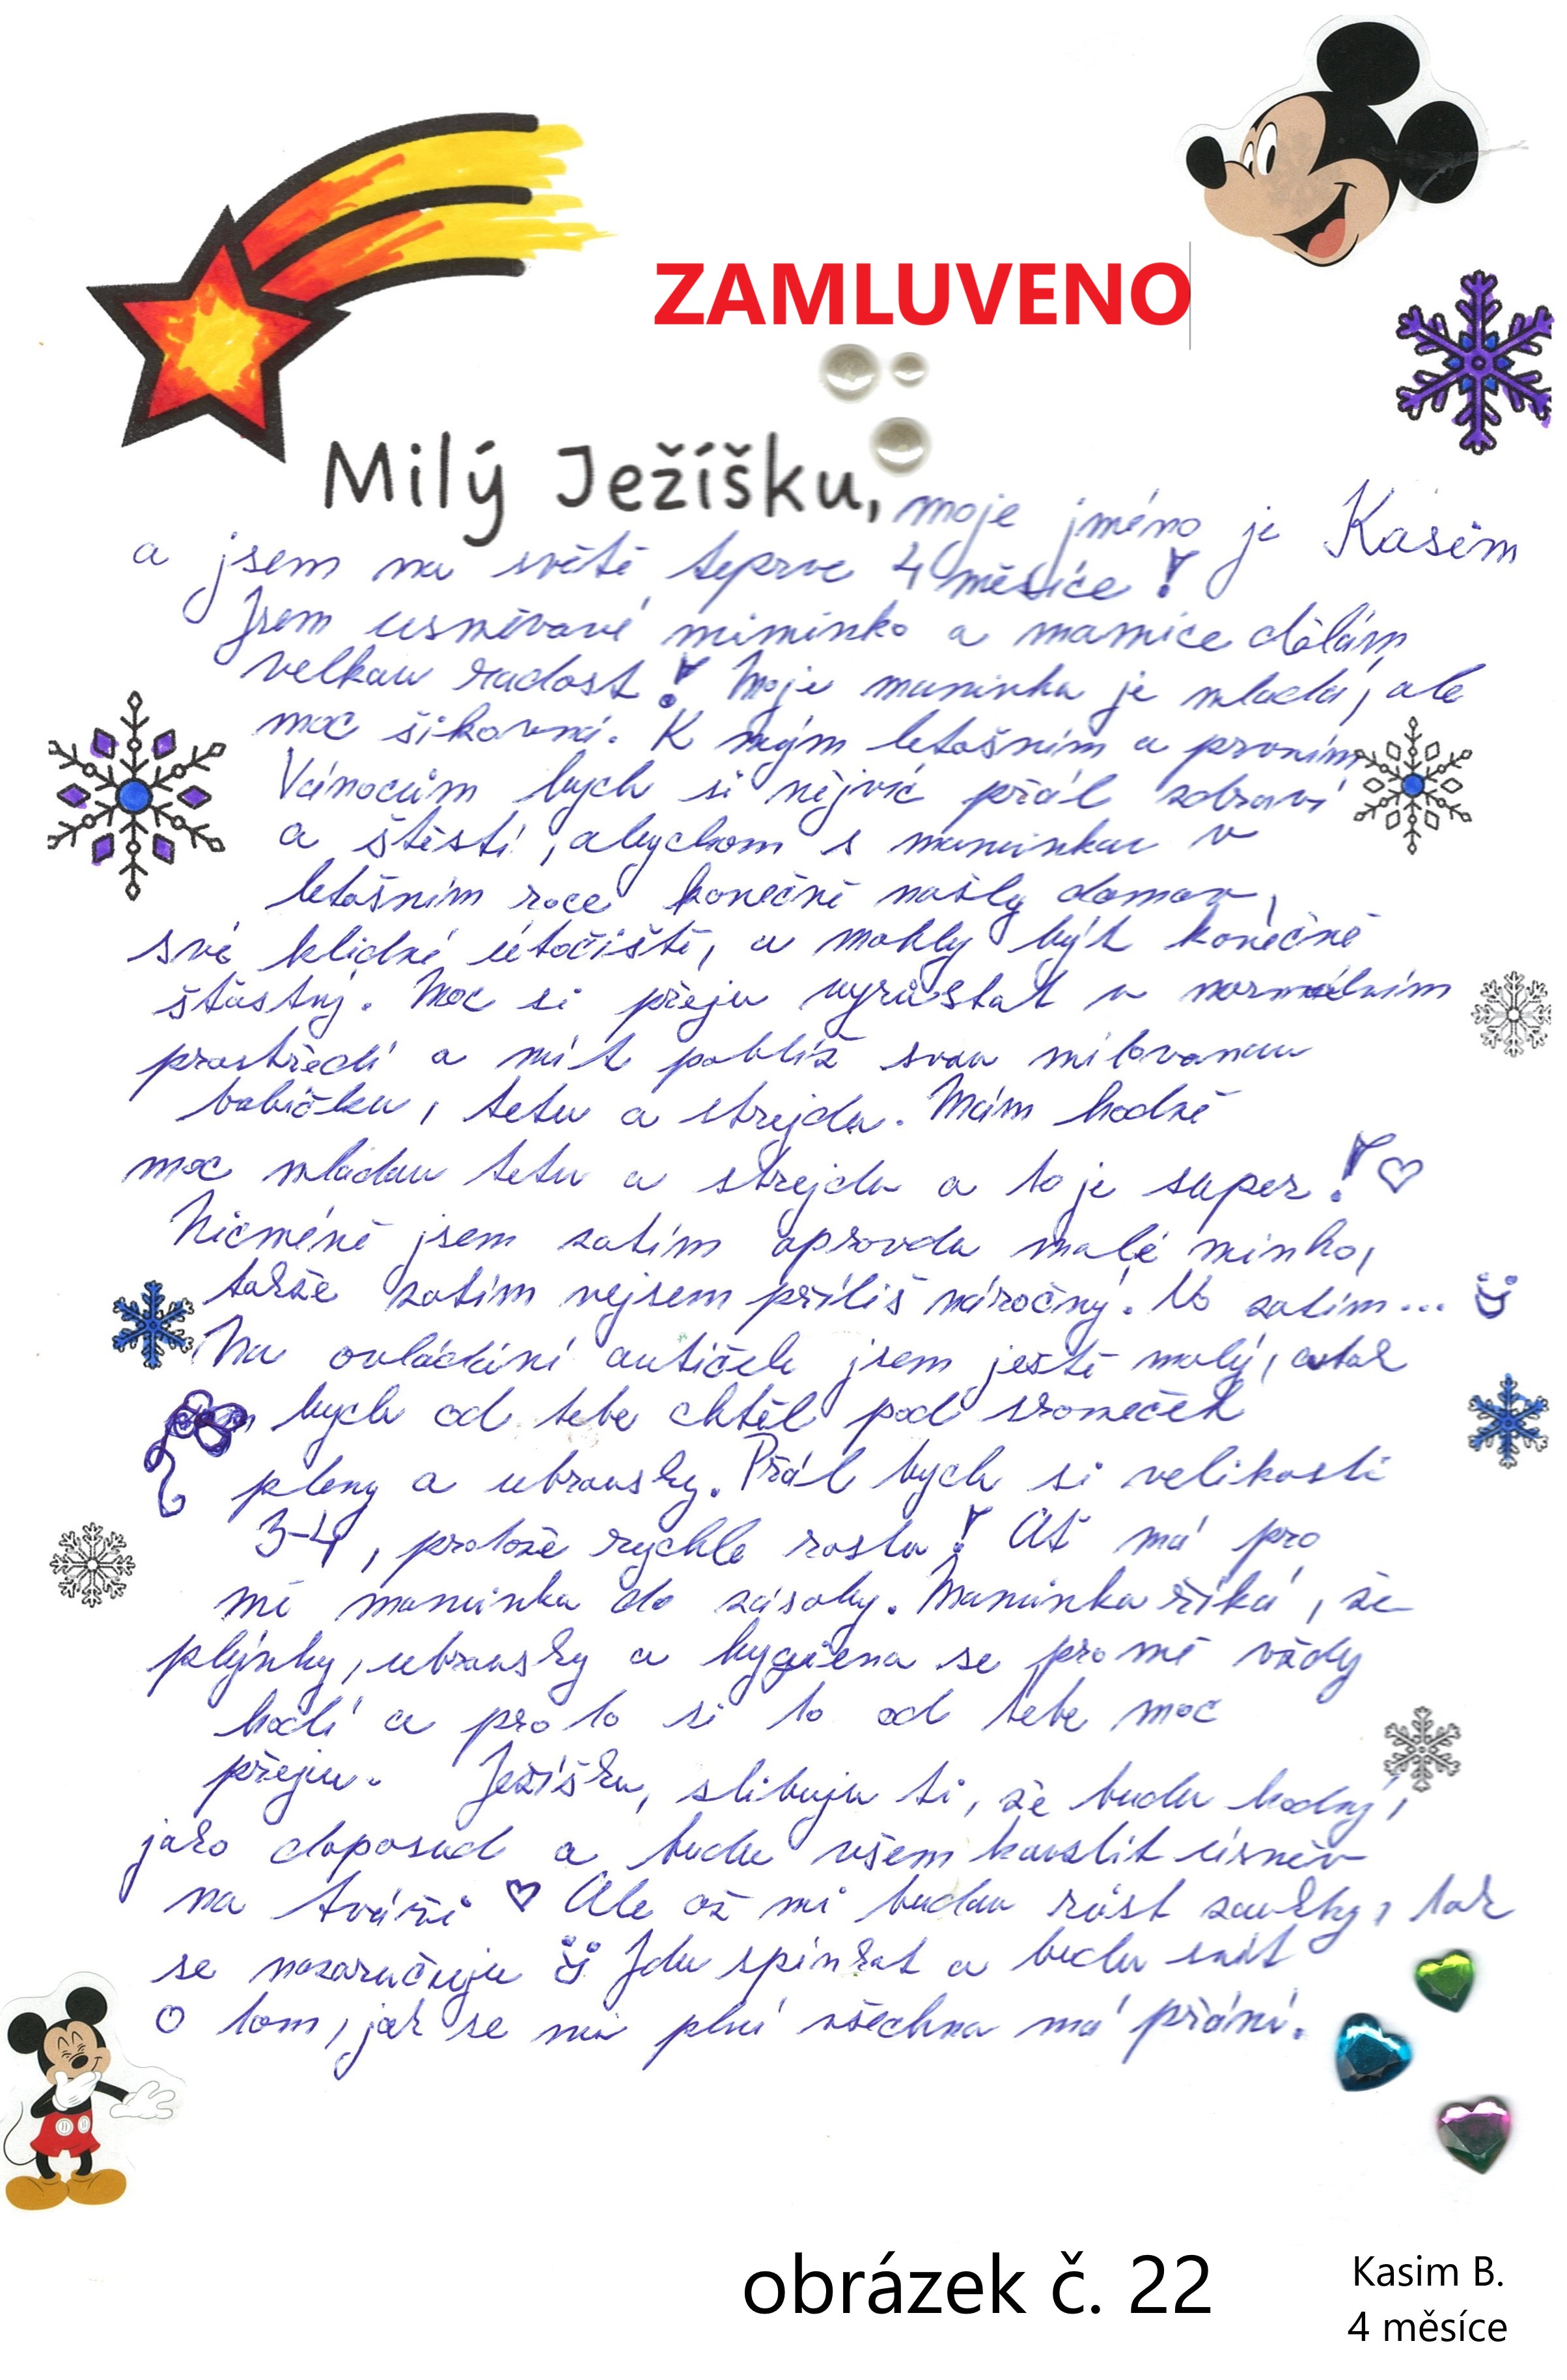 ZAMLUVENO
Milý Ježíšku, moje jméno je Kasim
a jsem na světě teprve 4 měsíce!
Jsem usměvavé miminko a mamice dělám
velkou radost! Moje maminka je mladá, ale
moc šikovná. K mým letošním a prvním
Vánocům bych si nějvíc přál zdraví
a štěstí, abychom s maminkou v
letošním roce konečně našly domov,
své klidné útočiště, a mohly být konečně
štastný. Moc si přeju vyrůstat v normálním
prostředí a mít poblíž svou milovanou
babičku, tetu a strejdu. Mám hodně
moc mladou tetu a strejdu a to je super!
Nicméně jsem zatím opravdu malé minko,
takže zatím nejsem příliš náročný. No zatím...
Na ovládání autíček jsem ještě malý, a tak
bych od tebe chtěl pod stromeček
pleny a ubrousky. Přál bych si velikosti
3-4, protože rychle rostu! Ať má pro
mě maminka do zásoby. Maminka říká, že
plýnky, ubrousky a hygiena se pro mě vždy
hodí a proto si to od tebe moc
přeju. Ježíšku, slibuju ti, že budu hodný,
jako doposud a budu všem kouzlit úsměv
na tváři Ale až mi budou růst zoubky, tak
se nezaručuju Jdu spinkat a budu snít
o tom, jak se mi plní všechna má přání.
obrázek č. 22
Kasim B.
4 měsíce